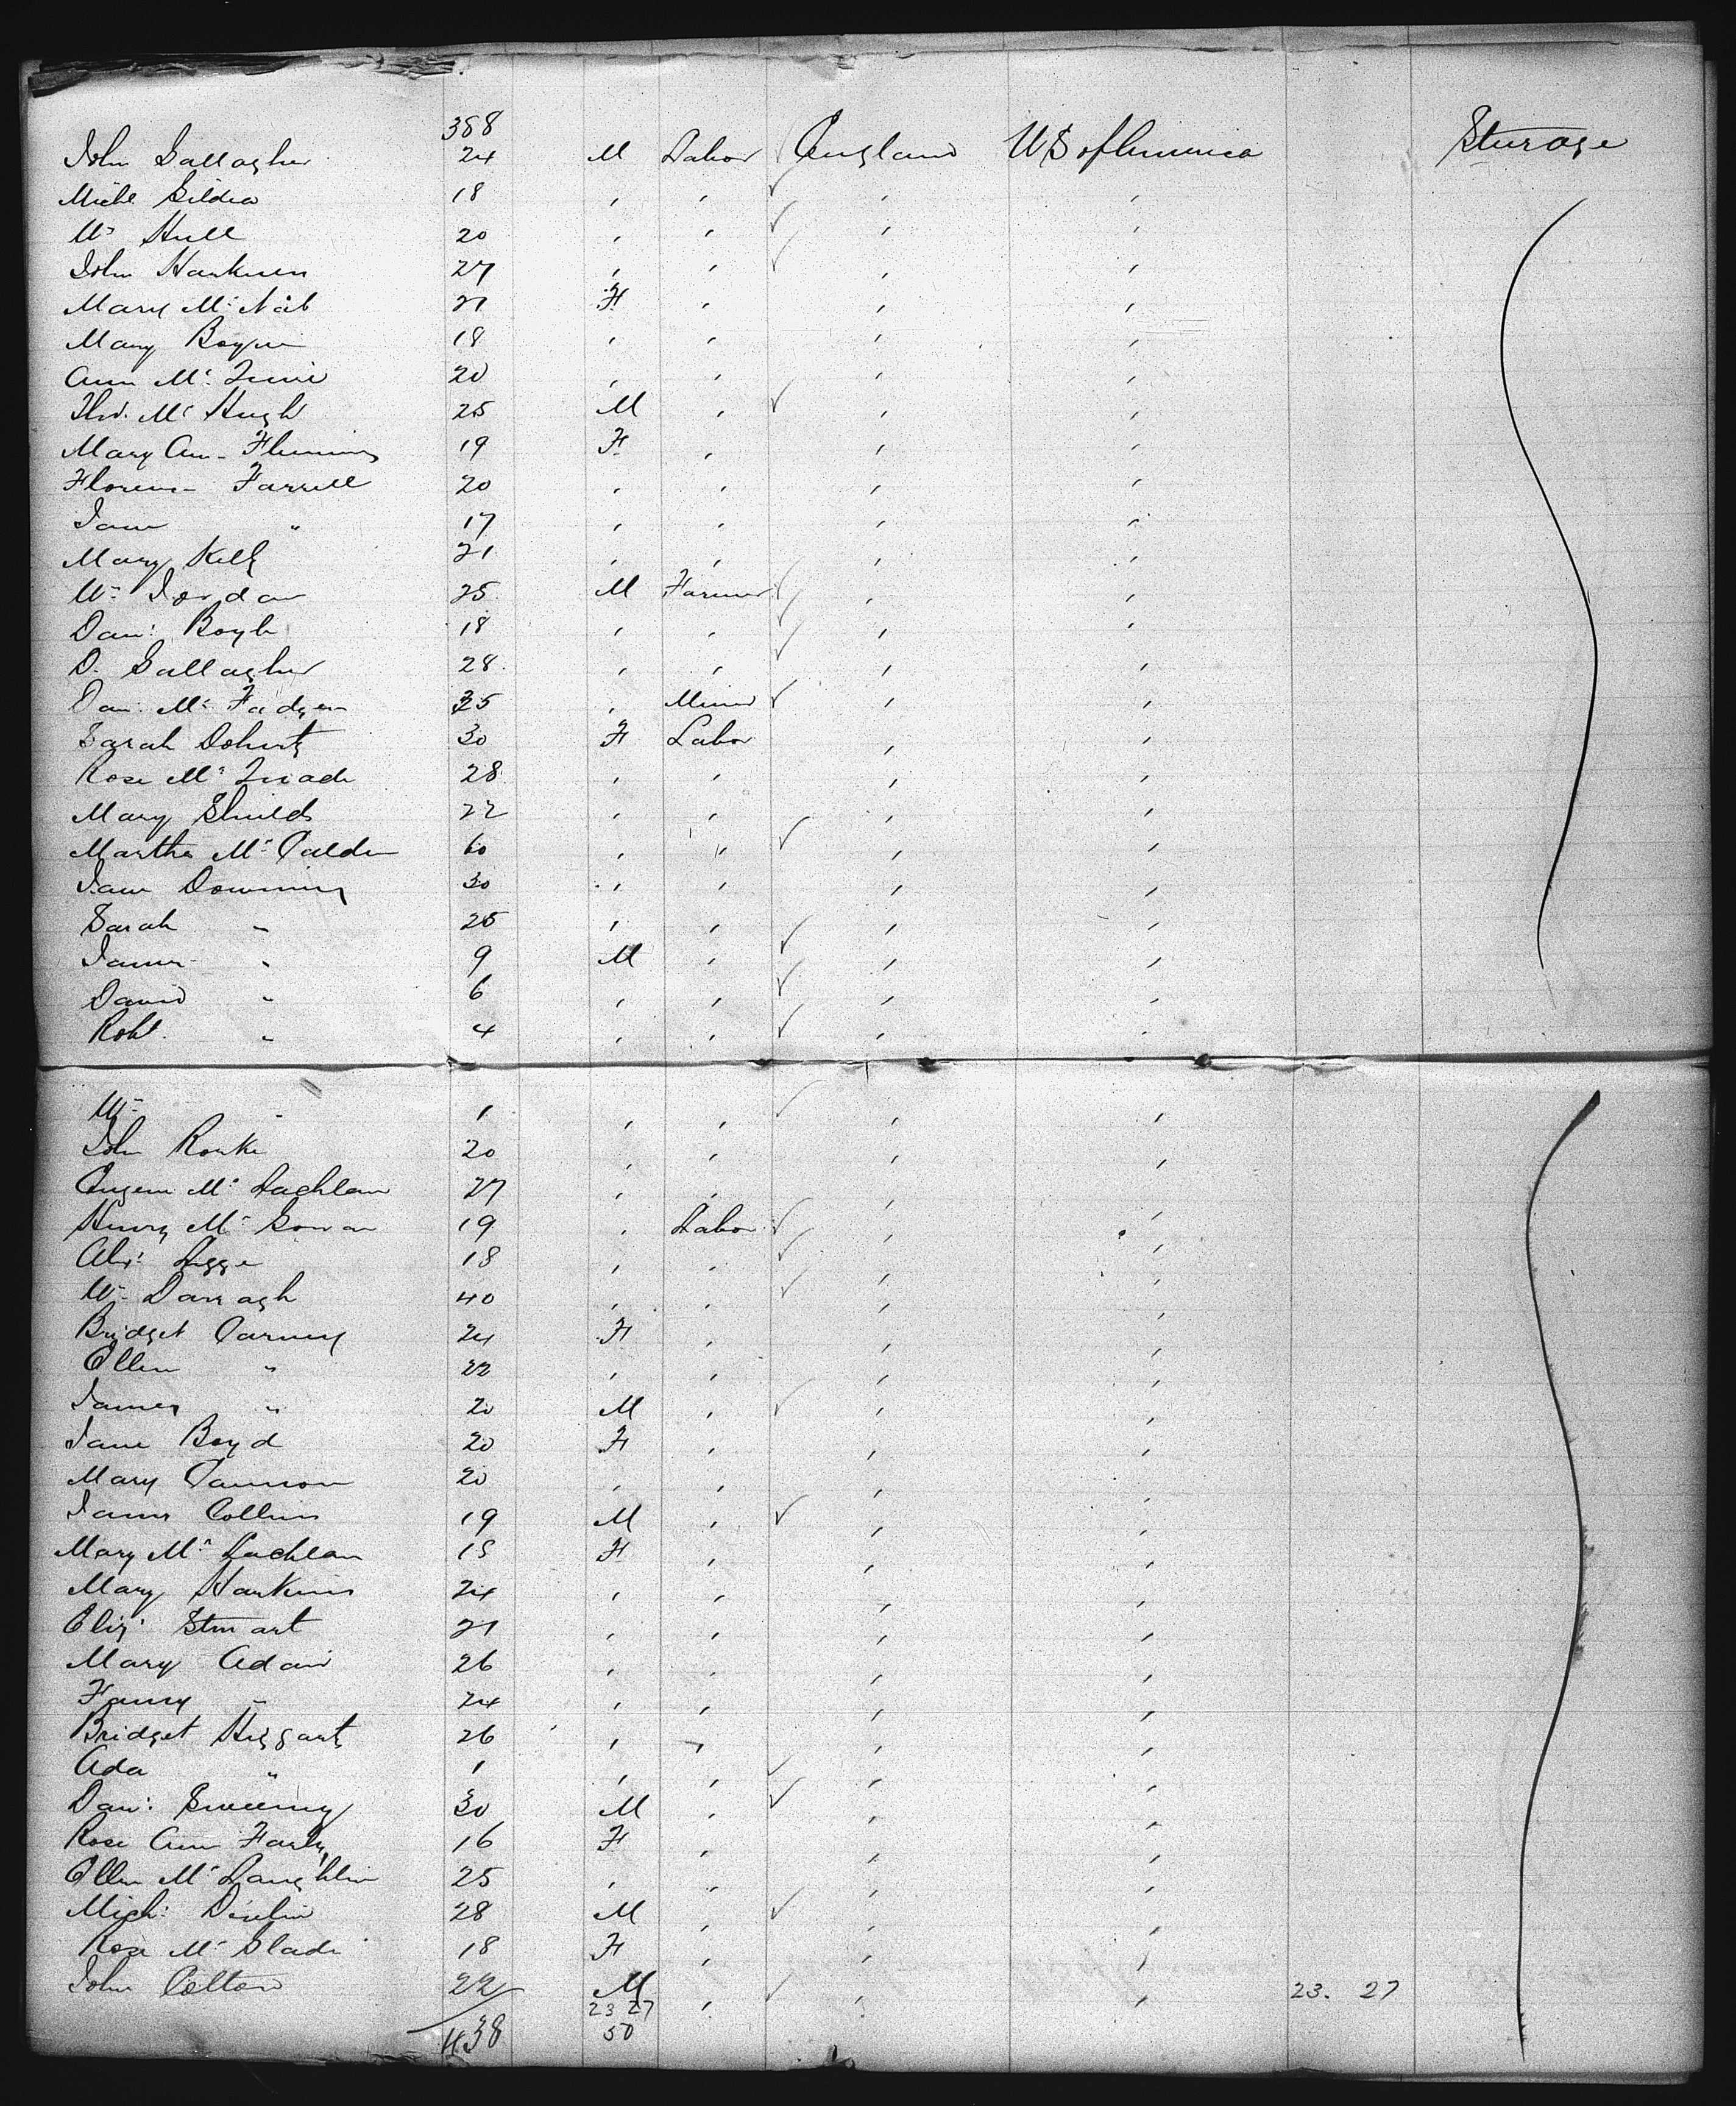 388
John Gallagher 24 M Labor England U S of America Sturage
Michl Gildea 18 , , , ,
Wm Hull 20 , , , ,
John Harkness 27 , , , ,
Mary Mc Nab 21 F , , ,
Mary Bogue 18 , , , ,
Ann Mc 20 , , , ,
Tho. Mc Hugh 25 M , , ,
Mary Ann Fleming 19 F , , ,
Florence Farrell 20 , , , ,
Jane " 17 , , , ,
Mary Kelly 21 , , , ,
Wm Jordan 25 M Farmer , ,
Danl Boyle 18 , , , ,
D. Gallagher 28 , , , ,
Danl Mc Fadgen 35 , Miner , ,
Sarah Doherty 30 F Labor , ,
Rose Mc Quade 28 , , , ,
Mary Shields 22 , , , ,
Martha Mc Calden 60 , " , ,
Jane Downing 30 , , , ,
Sarah " 25 , , , ,
James " 9 M , , ,
David " 6 , , , ,
Robt. " 4 , , , ,
Wm " 1 , , , ,
John Rourke 20 , , , ,
Eugene Mc Lachlan 27 , , , ,
Henry Mc Gowan 19 , Labor , ,
Alexr Legge 18 , , , ,
Wm Darragh 40 , , , ,
Bridget Carney 24 F , , ,
Ellen " 22 , , , ,
James " 20 M , , ,
Jane Boyd 20 F , , ,
Mary Cannon 20 , , , ,
James Collins 19 M , , ,
Mary Mc Lachlan 18 F , , ,
Mary Harkins 24 , , , ,
Eliz. Stuart 21 , , , ,
Mary Adair 26 , , , ,
Fanny " 24 , , , ,
Bridget Heggarty 26 , , , ,
Ada " 1 , , , ,
Danl Sweeney 30 M , , ,
Rose Ann Farley 16 F , , ,
Ellen Mc Laughlin 25 , , , ,
Michl Devlin 28 M , , ,
Rose Mc Glade 18 F , , ,
John Colton 22 M , , , 23. 27
23 27
438 50